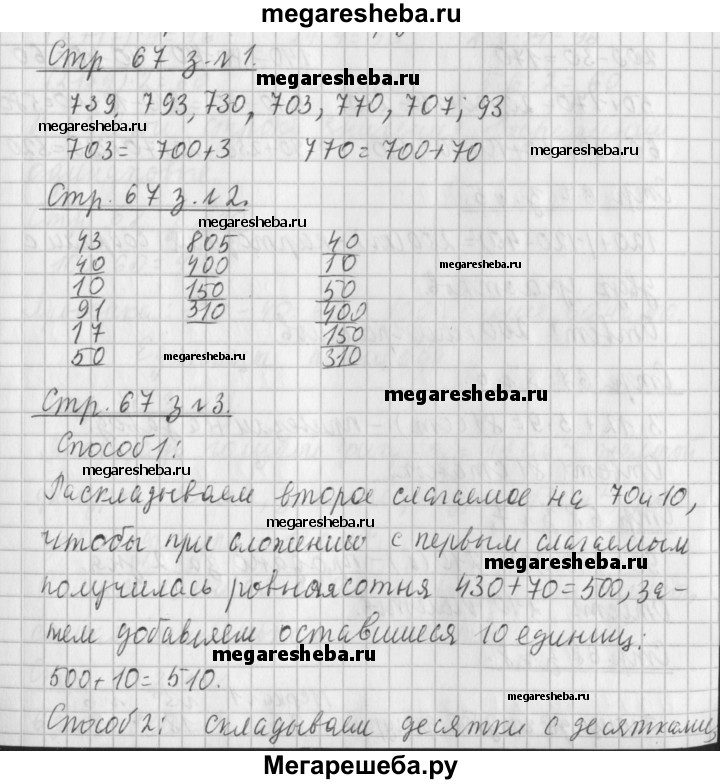 megaresheba.ru
Стр 67 з. №1.
megaresheba.ru
739, 793, 730, 703, 770, 707; 93
megaresheba.ru
703 = 700+3 770 = 700+70
megaresheba.ru
Стр. 67 з. №2.
megaresheba.ru
43 805 40
40 400 10
10 150 50
91 310 400
17 150
50 310
megaresheba.ru
megaresheba.ru
Стр. 67 з №3.
Способ 1:
megaresheba.ru
Раскладываем второе слагаемое на 70 и 10,
megaresheba.ru
чтобы при сложению с первым слагаемым
megaresheba.ru
получилась ровная сотня 430+70=500, за-
тем добавляем оставшиеся 10 единиц:
megaresheba.ru
500+10= 510.
megaresheba.ru
Способ 2: складываем десятки с десятками,
Мегарешеба.ру